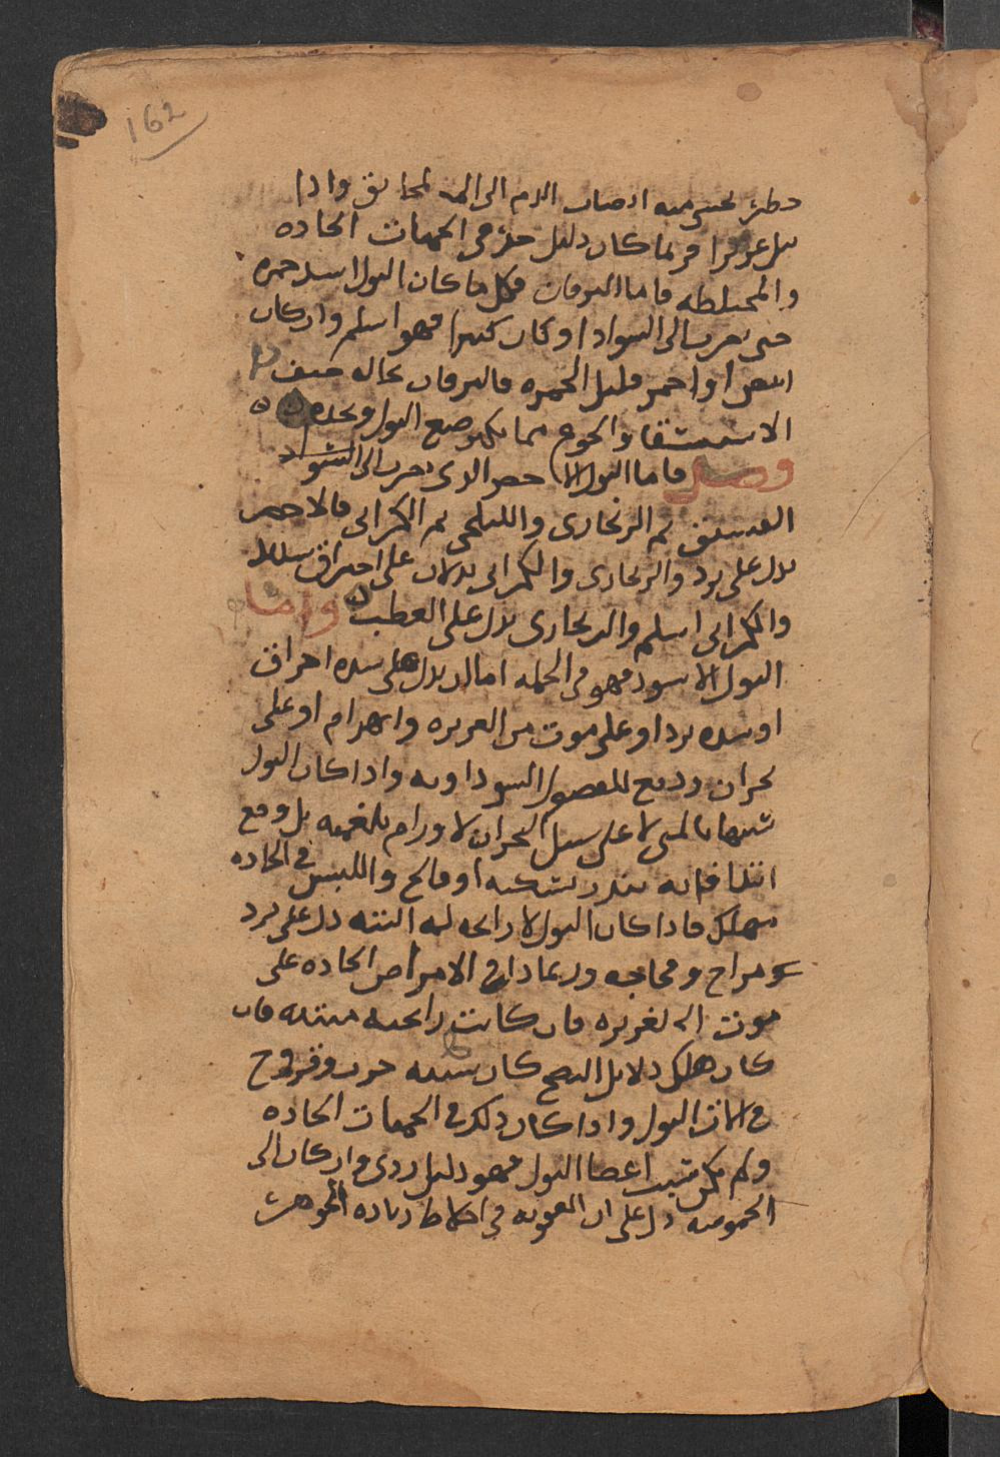 162
خطر يخشى منه انصباب الدم الى المخانق واذا
بيل غزيرا فربما كان دليل خير فى الحميات الحاده
والمختلطه فاما اليرقان فكل ما كان البول اشد حمره
حتى يضرب الى السواد او كان كثيرا فهو اسلم وان كان
ابيض او احمر قليل الحمره فاليرقان بحاله خيف
الاستسقا والجوع مما يكثر صبغ البول ويحده
وصل فاما البول الاخضر الذى يضرب الى السواد
الفستقى ثم الزنجارى والنيلنجى ثم الكراثى فالاخضر
يدل على برد والزنجارى والكراثى يدلان على احتراق شديد
والكراثى اسلم والزنجارى يدل على العطب واما
البول الاسود فهو فى الجمله اما ان يدل على شده احراق
او شده برد او على موت من الغريزه وانهزام او على
بحران ودفع للفضول السوداويه واذا كان البول
شبيها بالمنى لا على سبيل البحران لا ورام بلغميه بل وقع
ابتدا فانه ينذر بسكته او فالج واللبنى فى الحاده
مهلك فاذا كان البول لا رائحه له البته دل على برد
مزاج وفجاجه وربما دل فى الامراض الحاده على
موت الغريزه فان كانت رائحته منتنه فان
كان هناك دلايل النضج كان سببه جرب وقروح
فى الات البول واذا كان ذلك فى الحميات الحاده
ولم يكن بسبب اعضا البول فهو دليل ردى وان كان الى
الحموضه دل على ان العفونه فى اخلاط بارده الجوهر